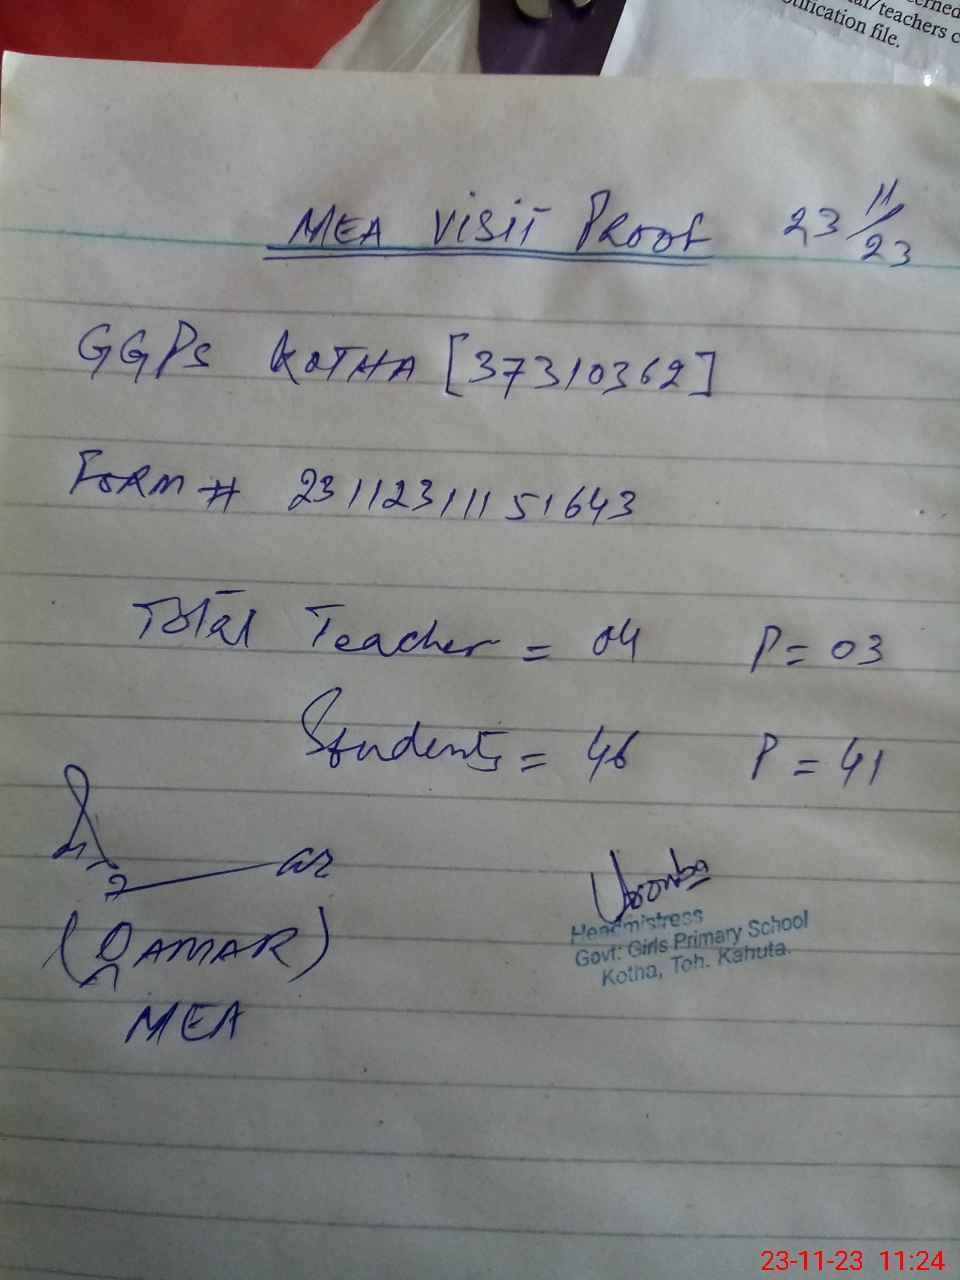 erned
al/teachers c
otification file.
MEA Visit Proof 23 11/23
GGPS KOTHA [37310362]
Form # 23112311151643
Total Teacher = 04 P = 03
Students = 46 P = 41
(QAMAR)
MEA
Headmistress
Govt: Girls Primary School
Kotha, Teh. Kahuta.
23-11-23 11:24